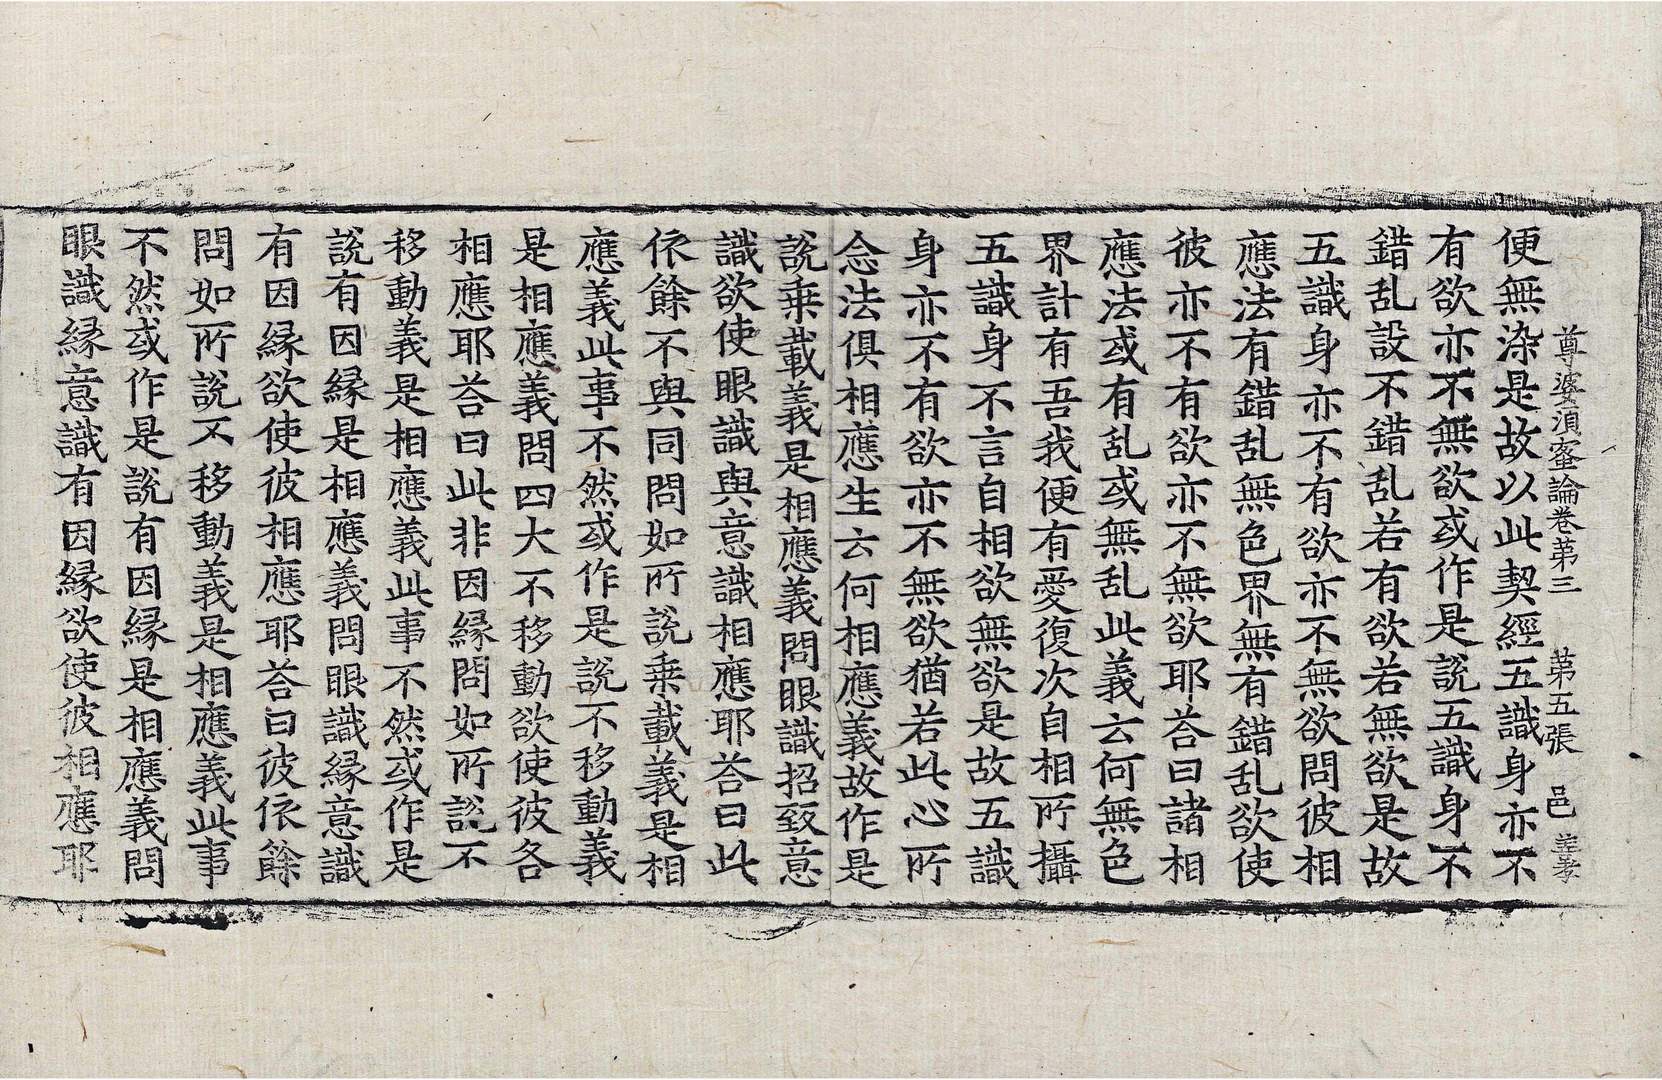 尊婆須蜜論卷第三　第五張　邑
便無染是故以此契經五識身亦不
有欲亦不無欲或作是說五識身不
錯乱設不錯乱若有欲若無欲是故
五識身亦不有欲亦不無欲問彼相
應法有錯乱無色界無有錯乱欲使
彼亦不有欲亦不無欲耶荅曰諸相
應法或有乱或無乱此義云何無色
界計有吾我便有愛復次自相所攝
五識身不言自相欲無欲是故五識
身亦不有欲亦不無欲猶若此心所
念法俱相應生云何相應義故作是
說乗載義是相應義問眼識招致意
識欲使眼識與意識相應耶荅曰此
依餘不與同問如所說乗載義是相
應義此事不然或作是說不移動義
是相應義問四大不移動欲使彼各
相應耶荅曰此非因縁問如所說不
移動義是相應義此事不然或作是
說有因縁是相應義問眼識縁意識
有因縁欲使彼相應耶荅曰彼依餘
問如所說不移動義是相應義此事
不然或作是說有因縁是相應義問
眼識縁意識有因縁欲使彼相應耶